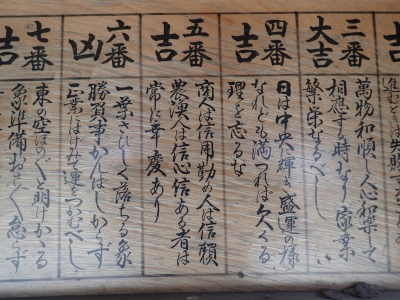 吉
進むときは失敗
三番
大吉
萬物和順し人心和楽して
相應する時なり 家業
繁栄なるべし
四番
吉
日は中央に輝き盛運の様
なれども満つれば欠くる
理を忘るな
五番
吉
商人は信用勤め人は信頼
農漁は信心信ある者は
常に幸慶あり
六番
凶
一葉さびしく落ちる象
勝負事かんばしからず
正業にはげみて運をつかむべし
七番
吉
東の空ほのぼのと明けかゝる
象準備おさおさ怠らず